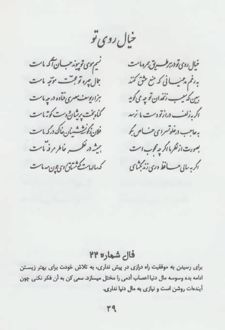 خیال روی تو
خیال روی تو در هر طریق همره ماست
نسیم موی تو پیوند جان آگه ماست
به رغم مدعیانی که منع عشق کنند
جمال چهره تو حجت موجه ماست
ببین که سیب زنخدان تو چه می‌گوید
هزار یوسف مصری فتاده در چه ماست
اگر به زلف دراز تو دست ما نرسد
گناه بخت پریشان و دست کوته ماست
به حاجب در خلوت سرای خاص بگو
فلان ز گوشه نشینان خاک درگه ماست
به صورت از نظر ما اگر چه محجوب است
همیشه در نظر خاطر مرفه ماست
اگر به سالی حافظ دری زند بگشای
که سالهاست که مشتاق روی چون مه ماست
فال شماره ۲۲
برای رسیدن به موفقیت راه درازی در پیش نداری، به تلاش خودت برای بهتر زیستن
ادامه بده وسوسه مال دنیا اعصاب آدمی را مختل میسازد. سعی کن به آن فکر نکنی چون
آینده‌ات روشن است و نیازی به مال دنیا نداری.
۲۹